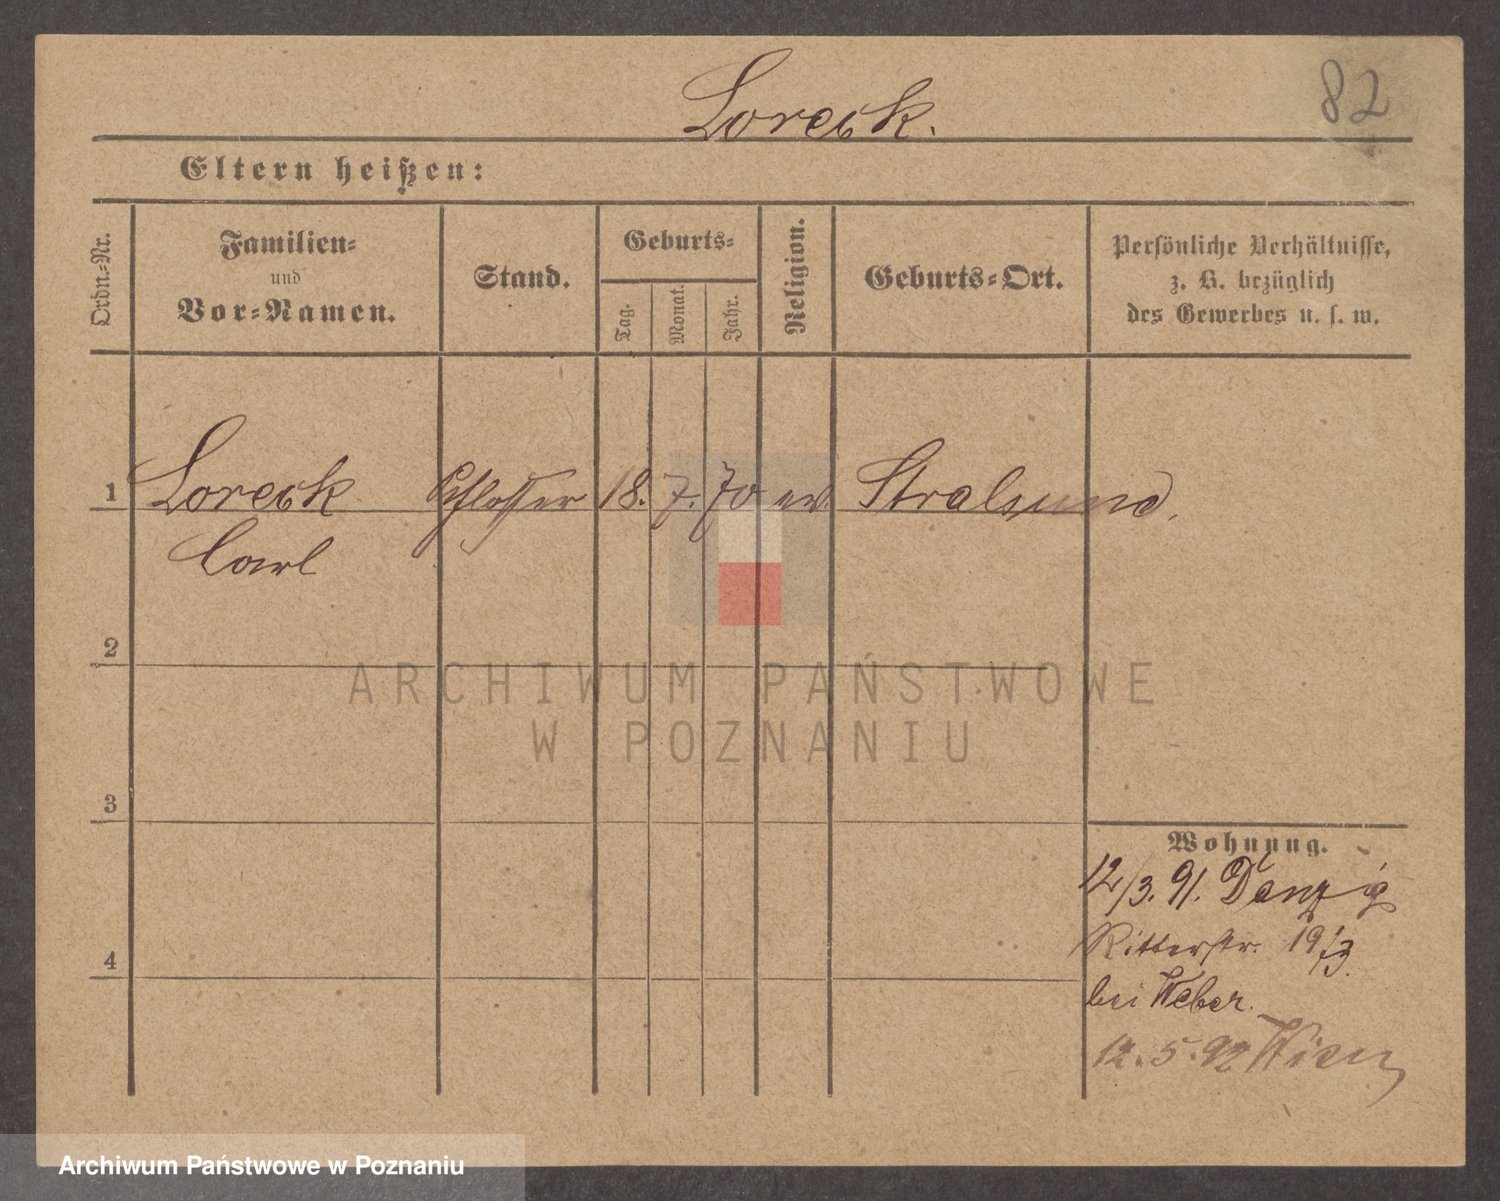 Loreck.
82
Eltern heißen:
Ordn.=Nr.
Familien=
und
Vor=Namen.
Stand.
Geburts=
Tag.
Monat.
Jahr.
Religion.
Geburts=Ort.
Persönliche Verhältnisse,
z. B. bezüglich
des Gewerbes u. s. w.
1 Loreck Schlosser 18. 7. 70 ev. Stralsund,
Carl
2
ARCHIWUM PAŃSTWOWE
W POZNANIU
3
Wohnung.
12/3. 91. Danzig
Ritterstr. 19/3.
4
bei Weber.
12.5.92 Wien
Archiwum Państwowe w Poznaniu